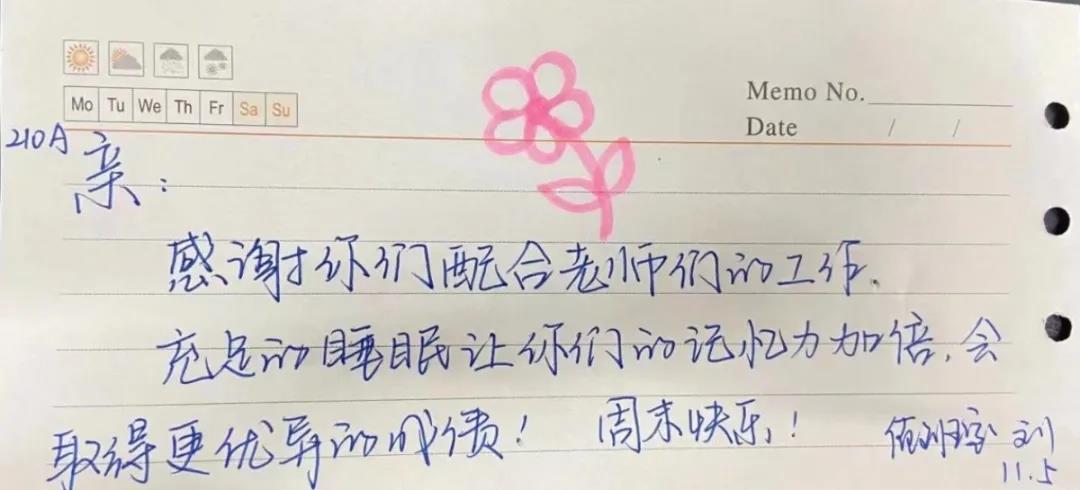 Mo Tu We Th Fr Sa Su
Memo No.
Date / /
210A 亲：
感谢你们配合老师们的工作.
充足的睡眠让你们的记忆力加倍,会
取得更优异的成绩! 周末快乐! 值班室 刘
11.5